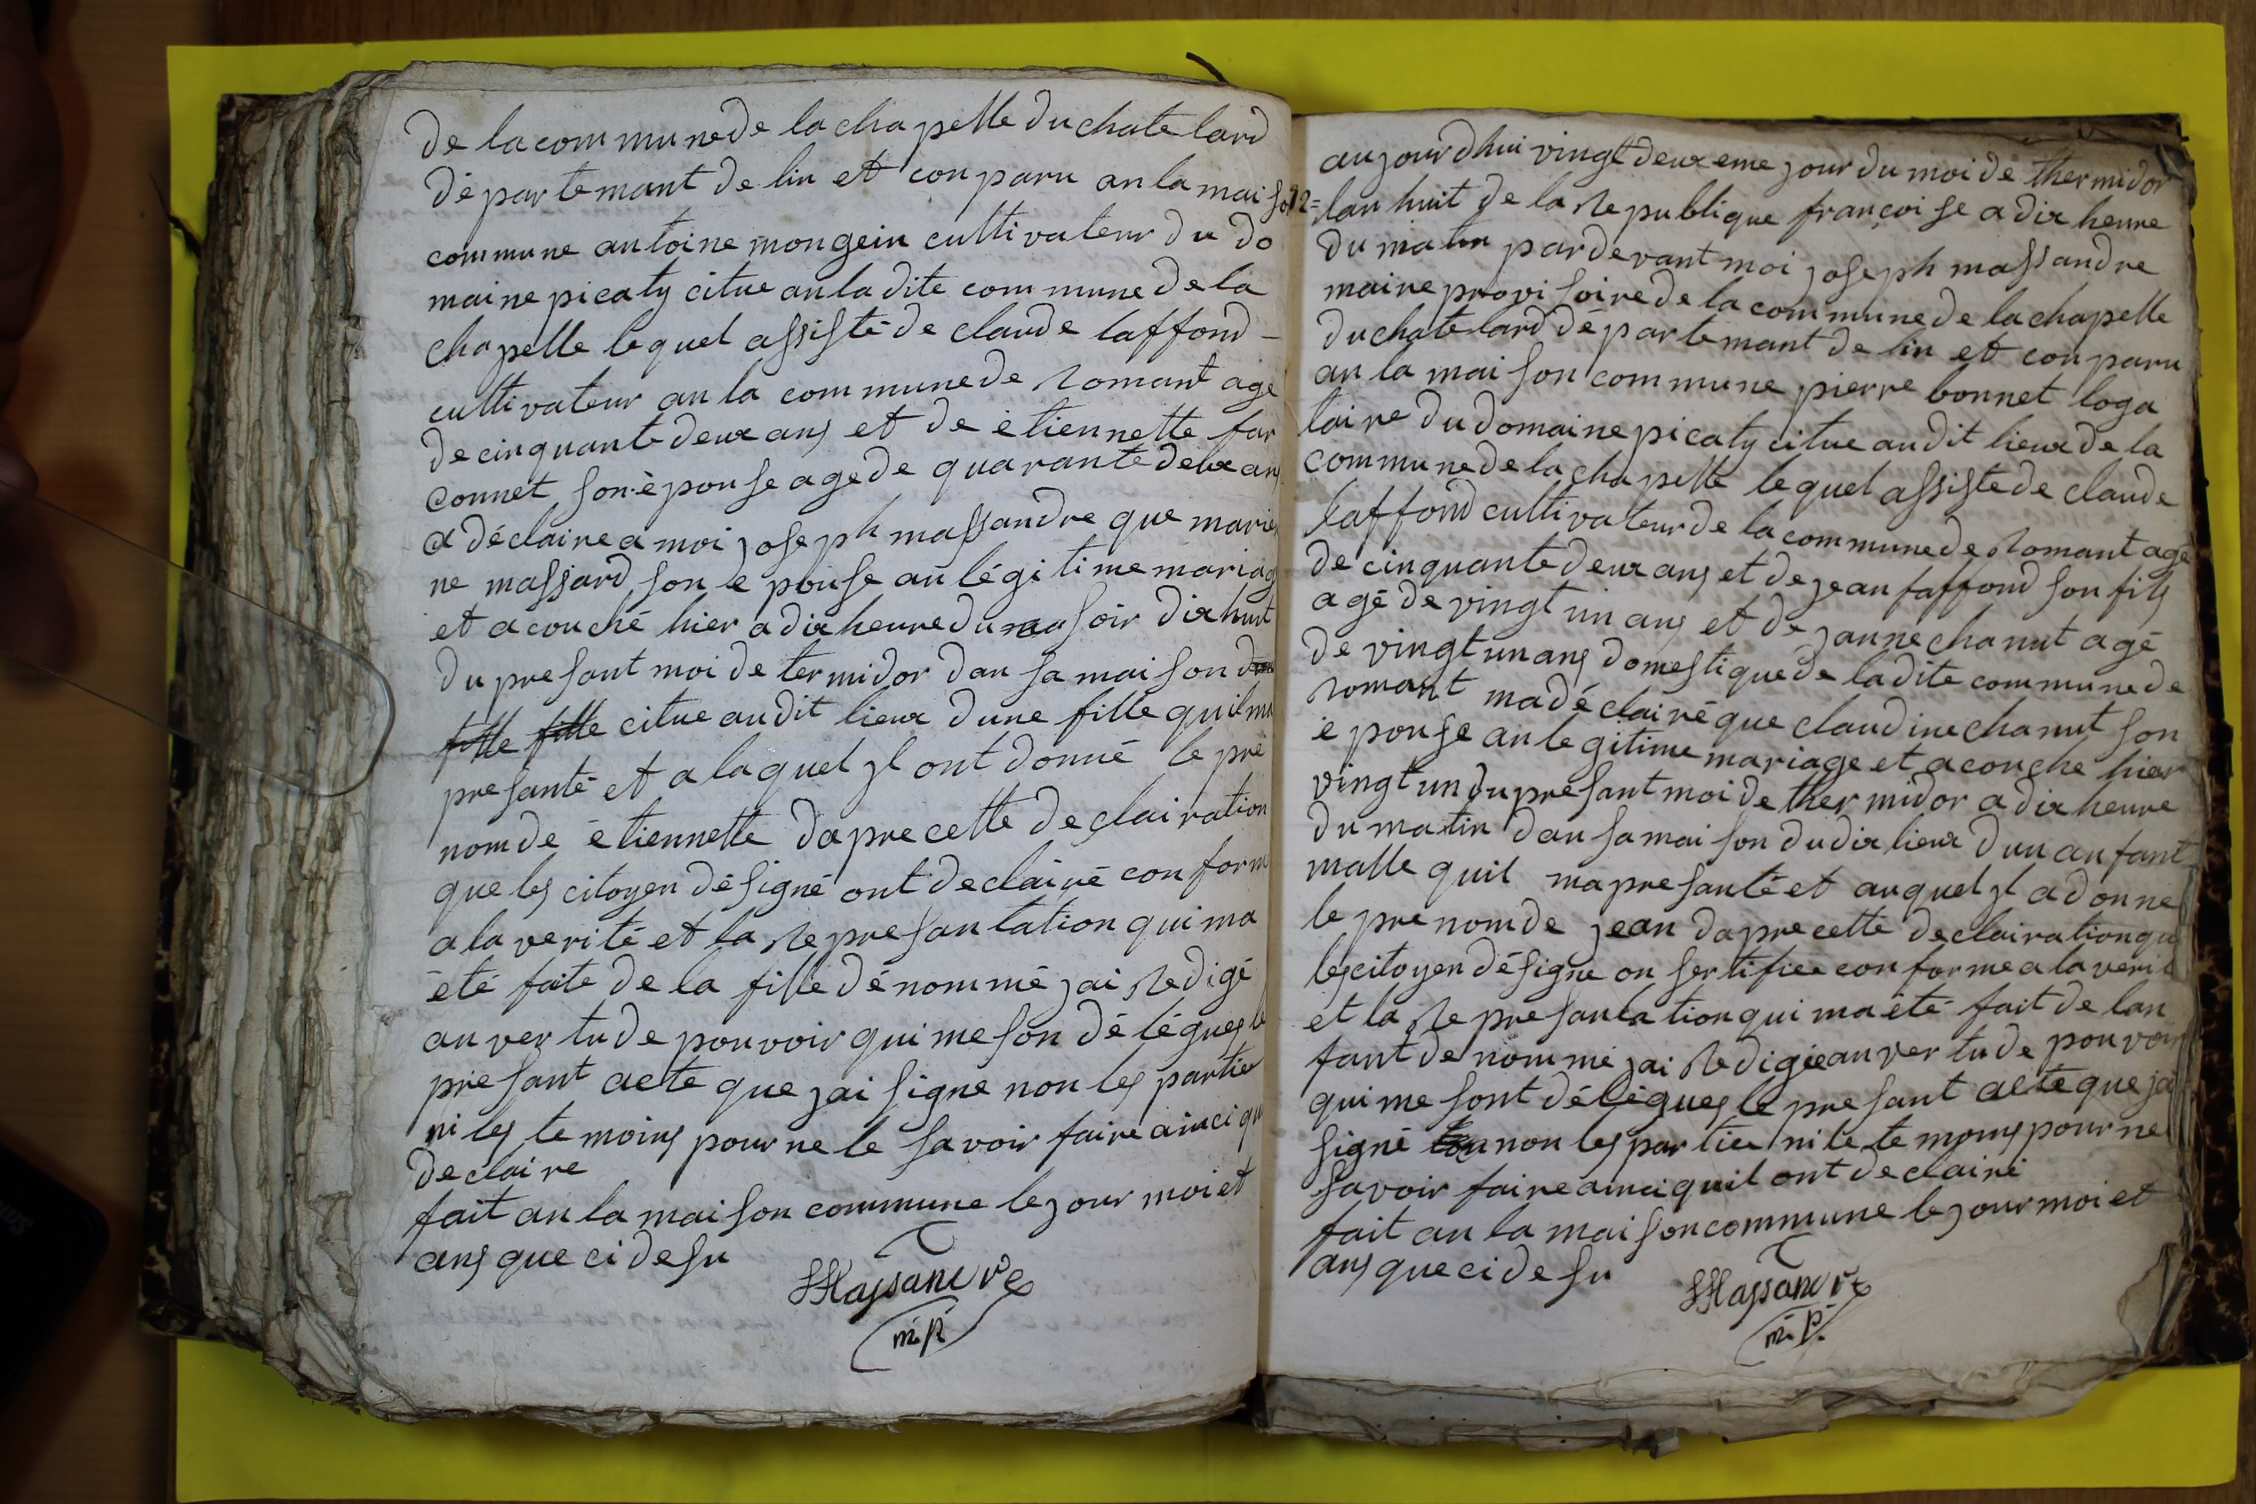 de la commune de la chapelle du chate lard
dé partemant de lin et conparu an la maison
commune antoine mongein cultivateur du do
maine picaty citue an la dite commune de la
chapelle lequel assisté de claude laffond -
cultivateur an la commune de Romant age
de cinquante deux ans et de étiennette far
connet son épouse age de quarante deux ans
a déclaire a moi joseph massandre que marie
ne massard son le pouse an légitime mariag
et acouché hier a dix heure du soir dix huit
du presant moi de termidor dan sa maison
fille fille citue audit lieux dune fille quil ma
presanté et a laquel jl ont donné le pré
nom de étiennette dapre cette declairation
que les citoyen désigné ont declairé conform
a la verité et la Represantation qui ma
été faite de la fille dénommé jai Redigé
an vertu de pouvoir qui me son délégues le
presant acte que jai signe non les partier
ni les temoins pour ne le savoir faire ainci qu
declaire
fait an la maison commune le jour moi et
ans que ci desu
JMassandre
m. p.
aujourdhui vingt deuxeme jour du moi de thermidor
12= lan huit de la Republique françoise a dix heure
du matin pardevant moi joseph massandre
maire provisoire de la commune de la chapelle
du chate lard département de lin et conparu
an la maison commune pierre bonnet loga
taire du domaine picaty citue audit lieux de la
commune de la chapelle lequel assiste de claude
laffond cultivateur de la commune de Romant agé
de cinquante deux ans et de jean faffond son fils
agé de vingt un ans et de janne chanut agé
de vingt un ans domestique de ladite commune de
Romant ma déclairé que claudine chanut son
épouse an legitime mariage et acouche hier
vingt un du présant moi de thermidor a dix heure
du matin dan sa maison dudix lieux dun anfant
malle quil ma presanté et auquel jl a donne
le prenom de jean dapre cette declairation qu
les citoyen désigne on sertifiee conforme a la verit
et la Represantation qui ma été fait de lan
fant de nommé jai Redigée an vertu de pouvoir
qui me sont délégues le presant acte que jai
signé non les partier ni le temoins pour ne
savoir faire ainci quil ont declairé
fait an la maison commune le jour moi et
ans que ci desu
JMassandre
m. p.